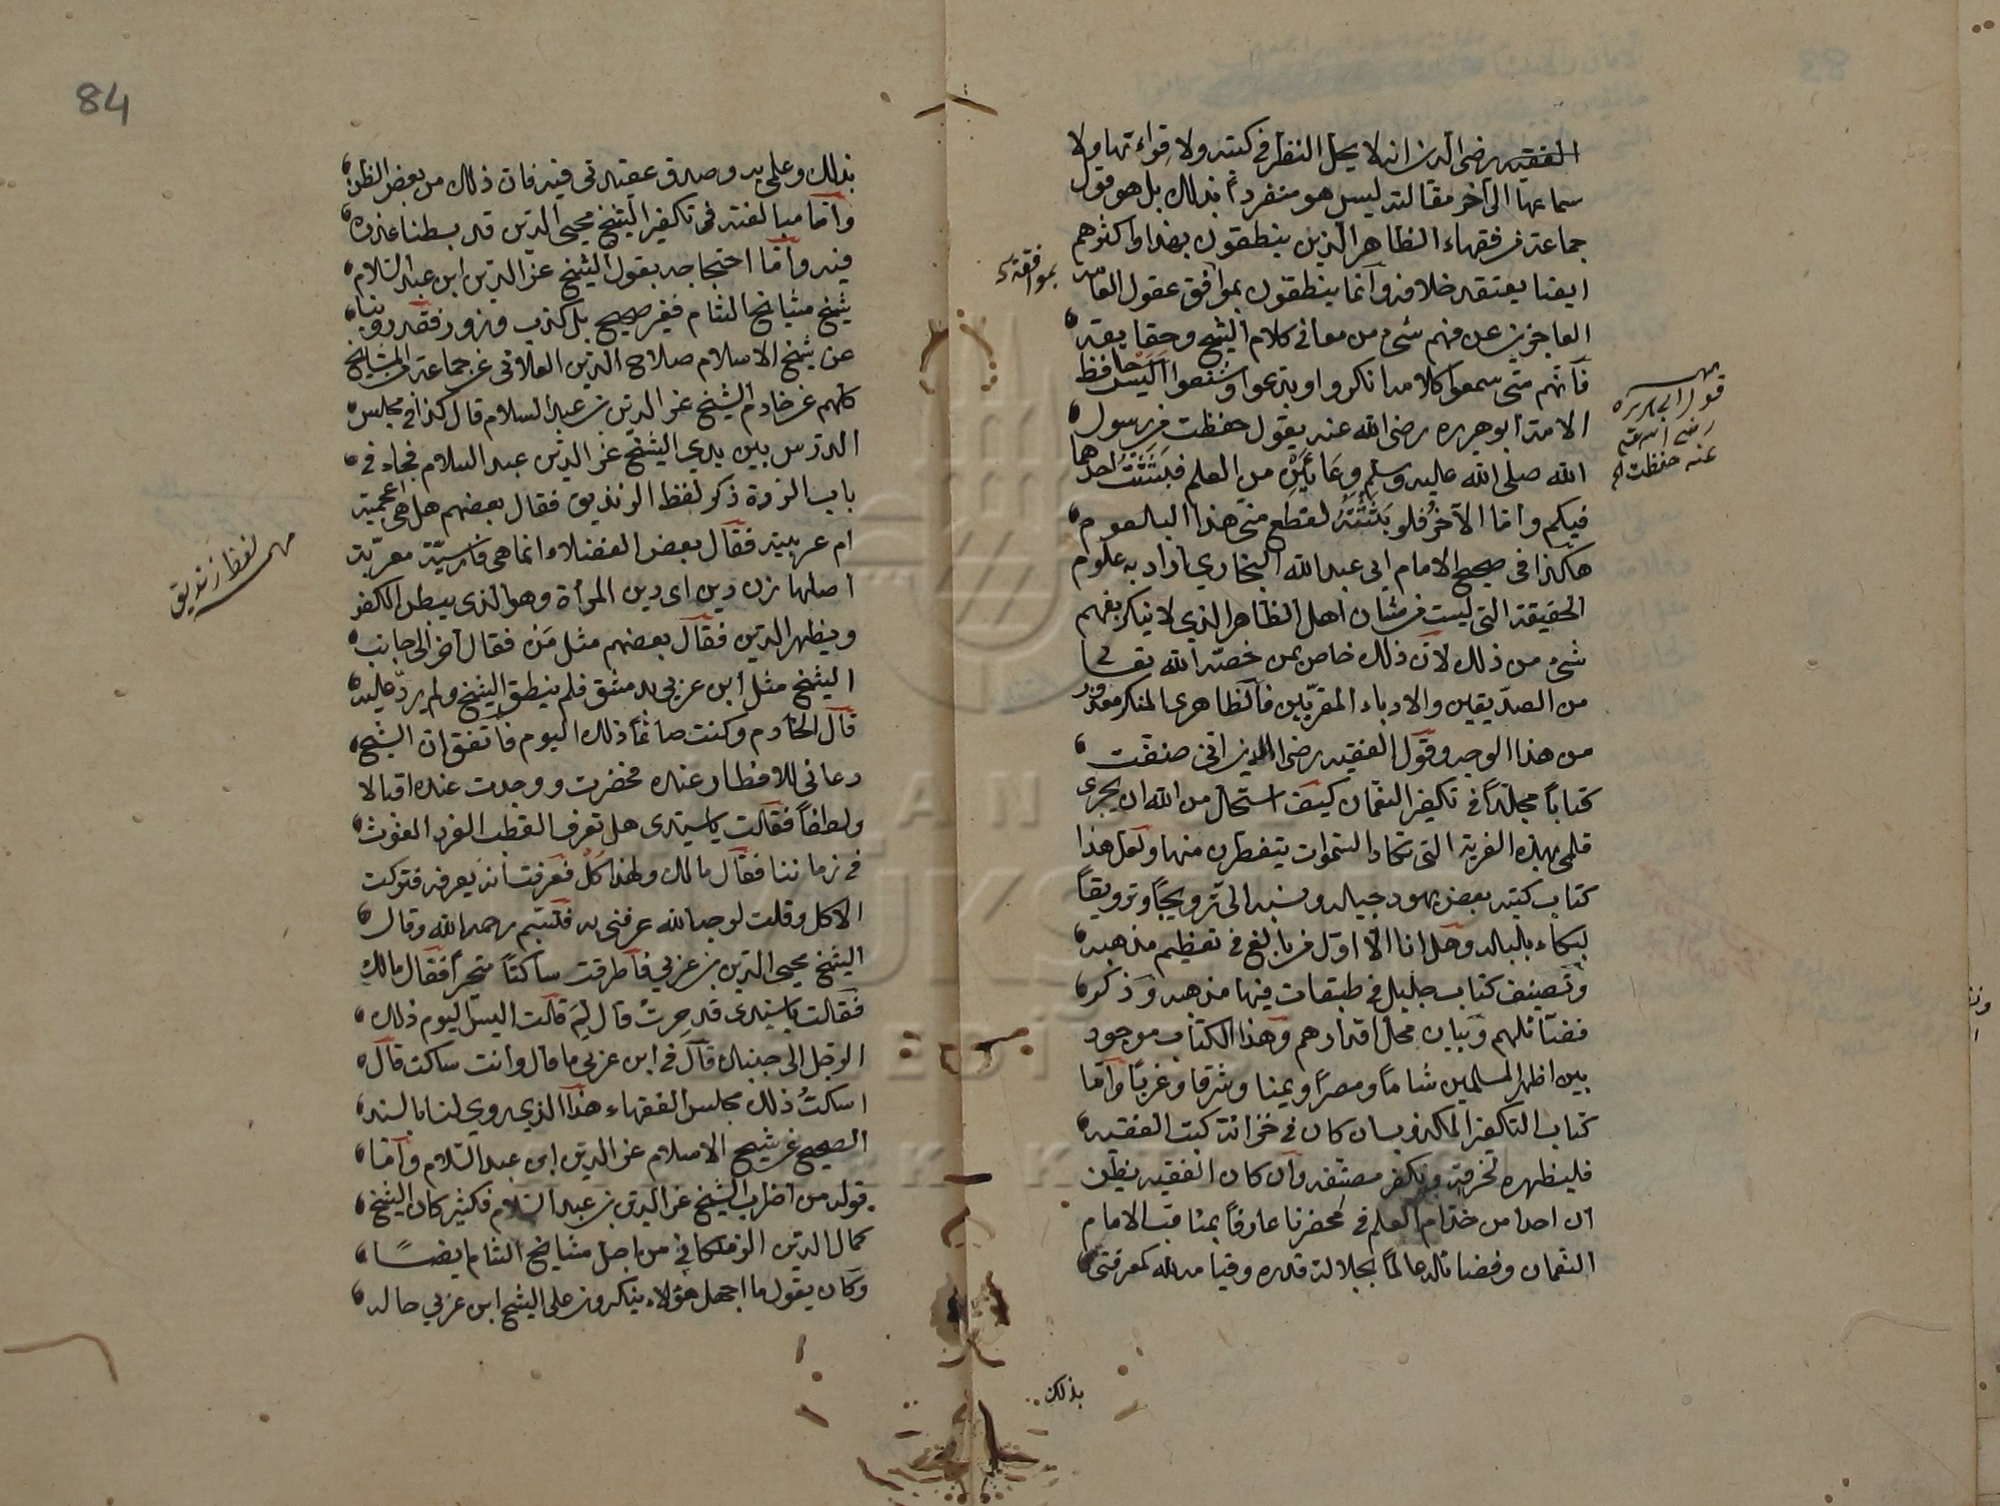 الفقيه رضى الدين انه لا يحل النظر فى كتبه ولا قراءتها ولا
سماعها الى آخر مقالته ليس هو منفرداً بذلك بل هو قول
جماعة من فقهاء الظاهر الذين ينطقون بهذا واكثرهم
ايضا يعتقد خلافه وانما ينطقون بموافق عقول العامة
بموافقة
العاجزين عن فهم شىء من معانى كلام الشيخ وحقايقه
فانهم متى سمعوا كلامه انكروا وبدعوا وشنعوا اليس حافظ
الامة ابو هريرة رضى الله عنه يقول حفظت من رسول
الله صلى الله عليه وسلم وعائين من العلم فبثثت احدهما
فيكم واما الآخر فلو بثثته لقطع منى هذا البلعوم
قول ابى هريره
رضى الله
عنه حفظت
هكذا فى صحيح الامام ابى عبد الله البخاري اراد به علوم
الحقيقة التى ليست من شان اهل الظاهر الذي لا ينكر بفهم
شىء من ذلك لان ذلك خاص بمن خصه الله تعالى
من الصديقين والادباء المقربين فالظاهرى المنكر معذور
من هذا الوجه وقول الفقيه رضى الدين اننى صنفت
كتاباً مجلداً فى تكفير النعمان كيف استحل من الله ان يجرى
قلمى بهذه الفرية التى تكاد السموات يتفطرن منها ولعل هذا
كتاب كتبه بعض يهود جباله ونسبه الى ترويجاً وتزويقاً
ليكاء بالباله وهل انا الا اول من بالغ فى تعظيم مذهبه
وتصنيف كتاب جليل فى طبقات فيها مذهبه وذكر
فضائلهم وبيان محل اقدارهم وهذا الكتاب موجود
بين اظهر المسلمين شاماً ومصراً ويمنا وشرقا وغرباً واما
كتاب التكفير المكذوب ان كان فى خزانة كتب الفقيه
فليظهره لنحرقه ونكفر مصنفه وان كان الفقيه يظن
ان احدا من خدام العلم فى محضرنا عارفاً بمناقب الامام
النعمان وفضائله عالماً بجلالة قدره وقيامه لله كمعرفتى
بذلك
84
بذلك وعلمى به وصدق عقيدتى فيه فان ذلك من بعض الظن
واما مبالغته فى تكفير الشيخ محيى الدين قد بسطنا عذره
فيه واما احتجاجه بقول الشيخ عز الدين ابن عبد السلام
شيخ مشايخ الشام فغير صحيح بل كذب وزور فقد روينا
عن شيخ الاسلام صلاح الدين العلائى عن جماعة من المشايخ
كلهم عن خادم الشيخ عز الدين بن عبد السلام قال كنا فى مجلس
الدرس بين يدي الشيخ عز الدين عبد السلام فجاء فى
باب الردة ذكر لفظ الزنديق فقال بعضهم هل هى اعجمية
ام عربية فقال بعض الفضلاء انما هى فارسية معربة
لفظ زنديق
اصلها زن دين اى دين المرأة وهو الذى يبطن الكفر
ويظهر الدين فقال بعضهم مثل من فقال آخر الى جانب
الشيخ مثل ابن عربى بدمشق فلم ينطق الشيخ ولم يرد عليه
قال الخادم وكنت صائماً ذلك اليوم فاتفق ان الشيخ
دعانى للافطار عنده فحضرت ووجدت عنده اقبالا
ولطفاً فقالت يا سيدى هل تعرف القطب الفرد الغوث
فى زماننا فقال مالك ولهذا كل فعرفت انه يعرفه فتركت
الاكل وقلت لوجه الله عرفنى به فتبسم رحمه الله وقال
الشيخ محيى الدين بن عربي فاطرقت ساكتاً متحيراً فقال مالك
فقالت يا سيدى قد حرت قال لم قالت اليس اليوم ذلك
الرجل الى جنبك قال فى ابن عربى ما قال وانت ساكت قال
اسكت ذلك مجلس الفقهاء هذا الذي روي لنا بالسند
الصحيح عن شيخ الاسلام عز الدين ابن عبد السلام واما
قوله من اضراب الشيخ عز الدين بن عبد السلام فكثير كان الشيخ
كمال الدين الزملكانى من اجل مشايخ الشام ايضاً
وكان يقول ما اجهل هؤلاء ينكرون على الشيخ ابن عربي حاله